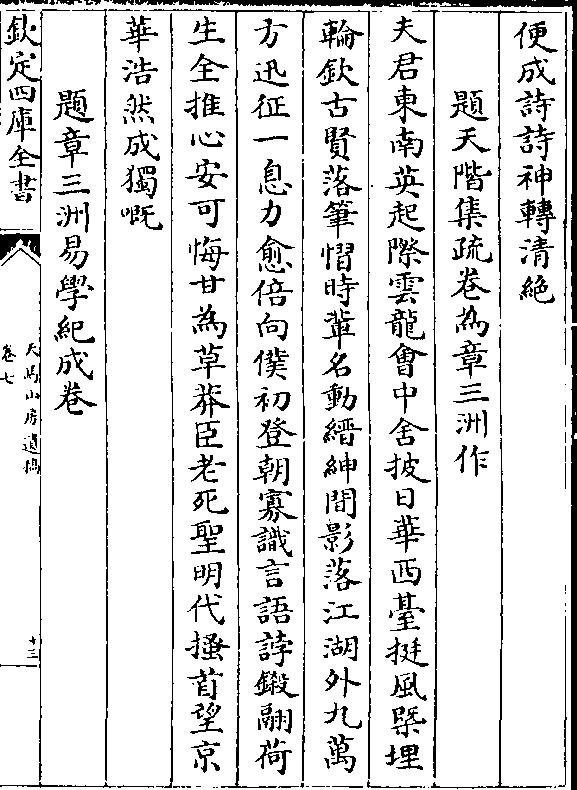 便成詩詩神轉清絶
題天階集䟽卷為章三洲作
夫君東南英起際雲龍會中舍披日華西臺挺風槩埋
輪欽古賢落筆慴時軰名動縉紳間影落江湖外九萬
方迅征一息力愈倍向僕初登朝寡識言語誖鍛翮荷
生全推心安可悔甘為草莽臣老死聖明代搔首望京
華浩然成獨嘅
題章三洲易學紀成卷
欽定四庫全書
天馬山房遺稿
卷七
十三